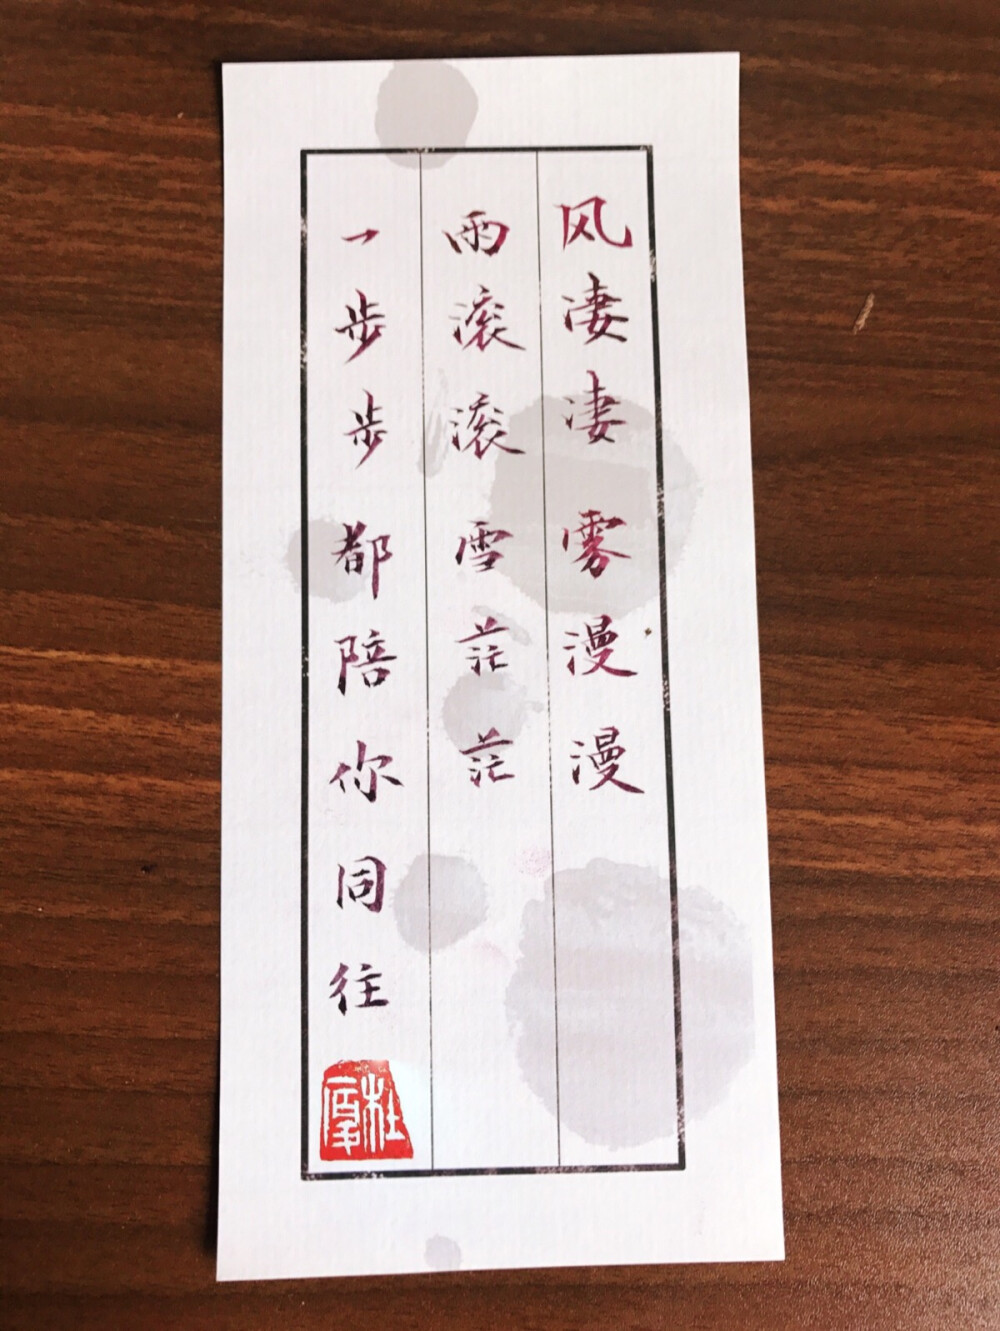 风凄凄雾漫漫
雨滚滚雪茫茫
一步步都陪你同往